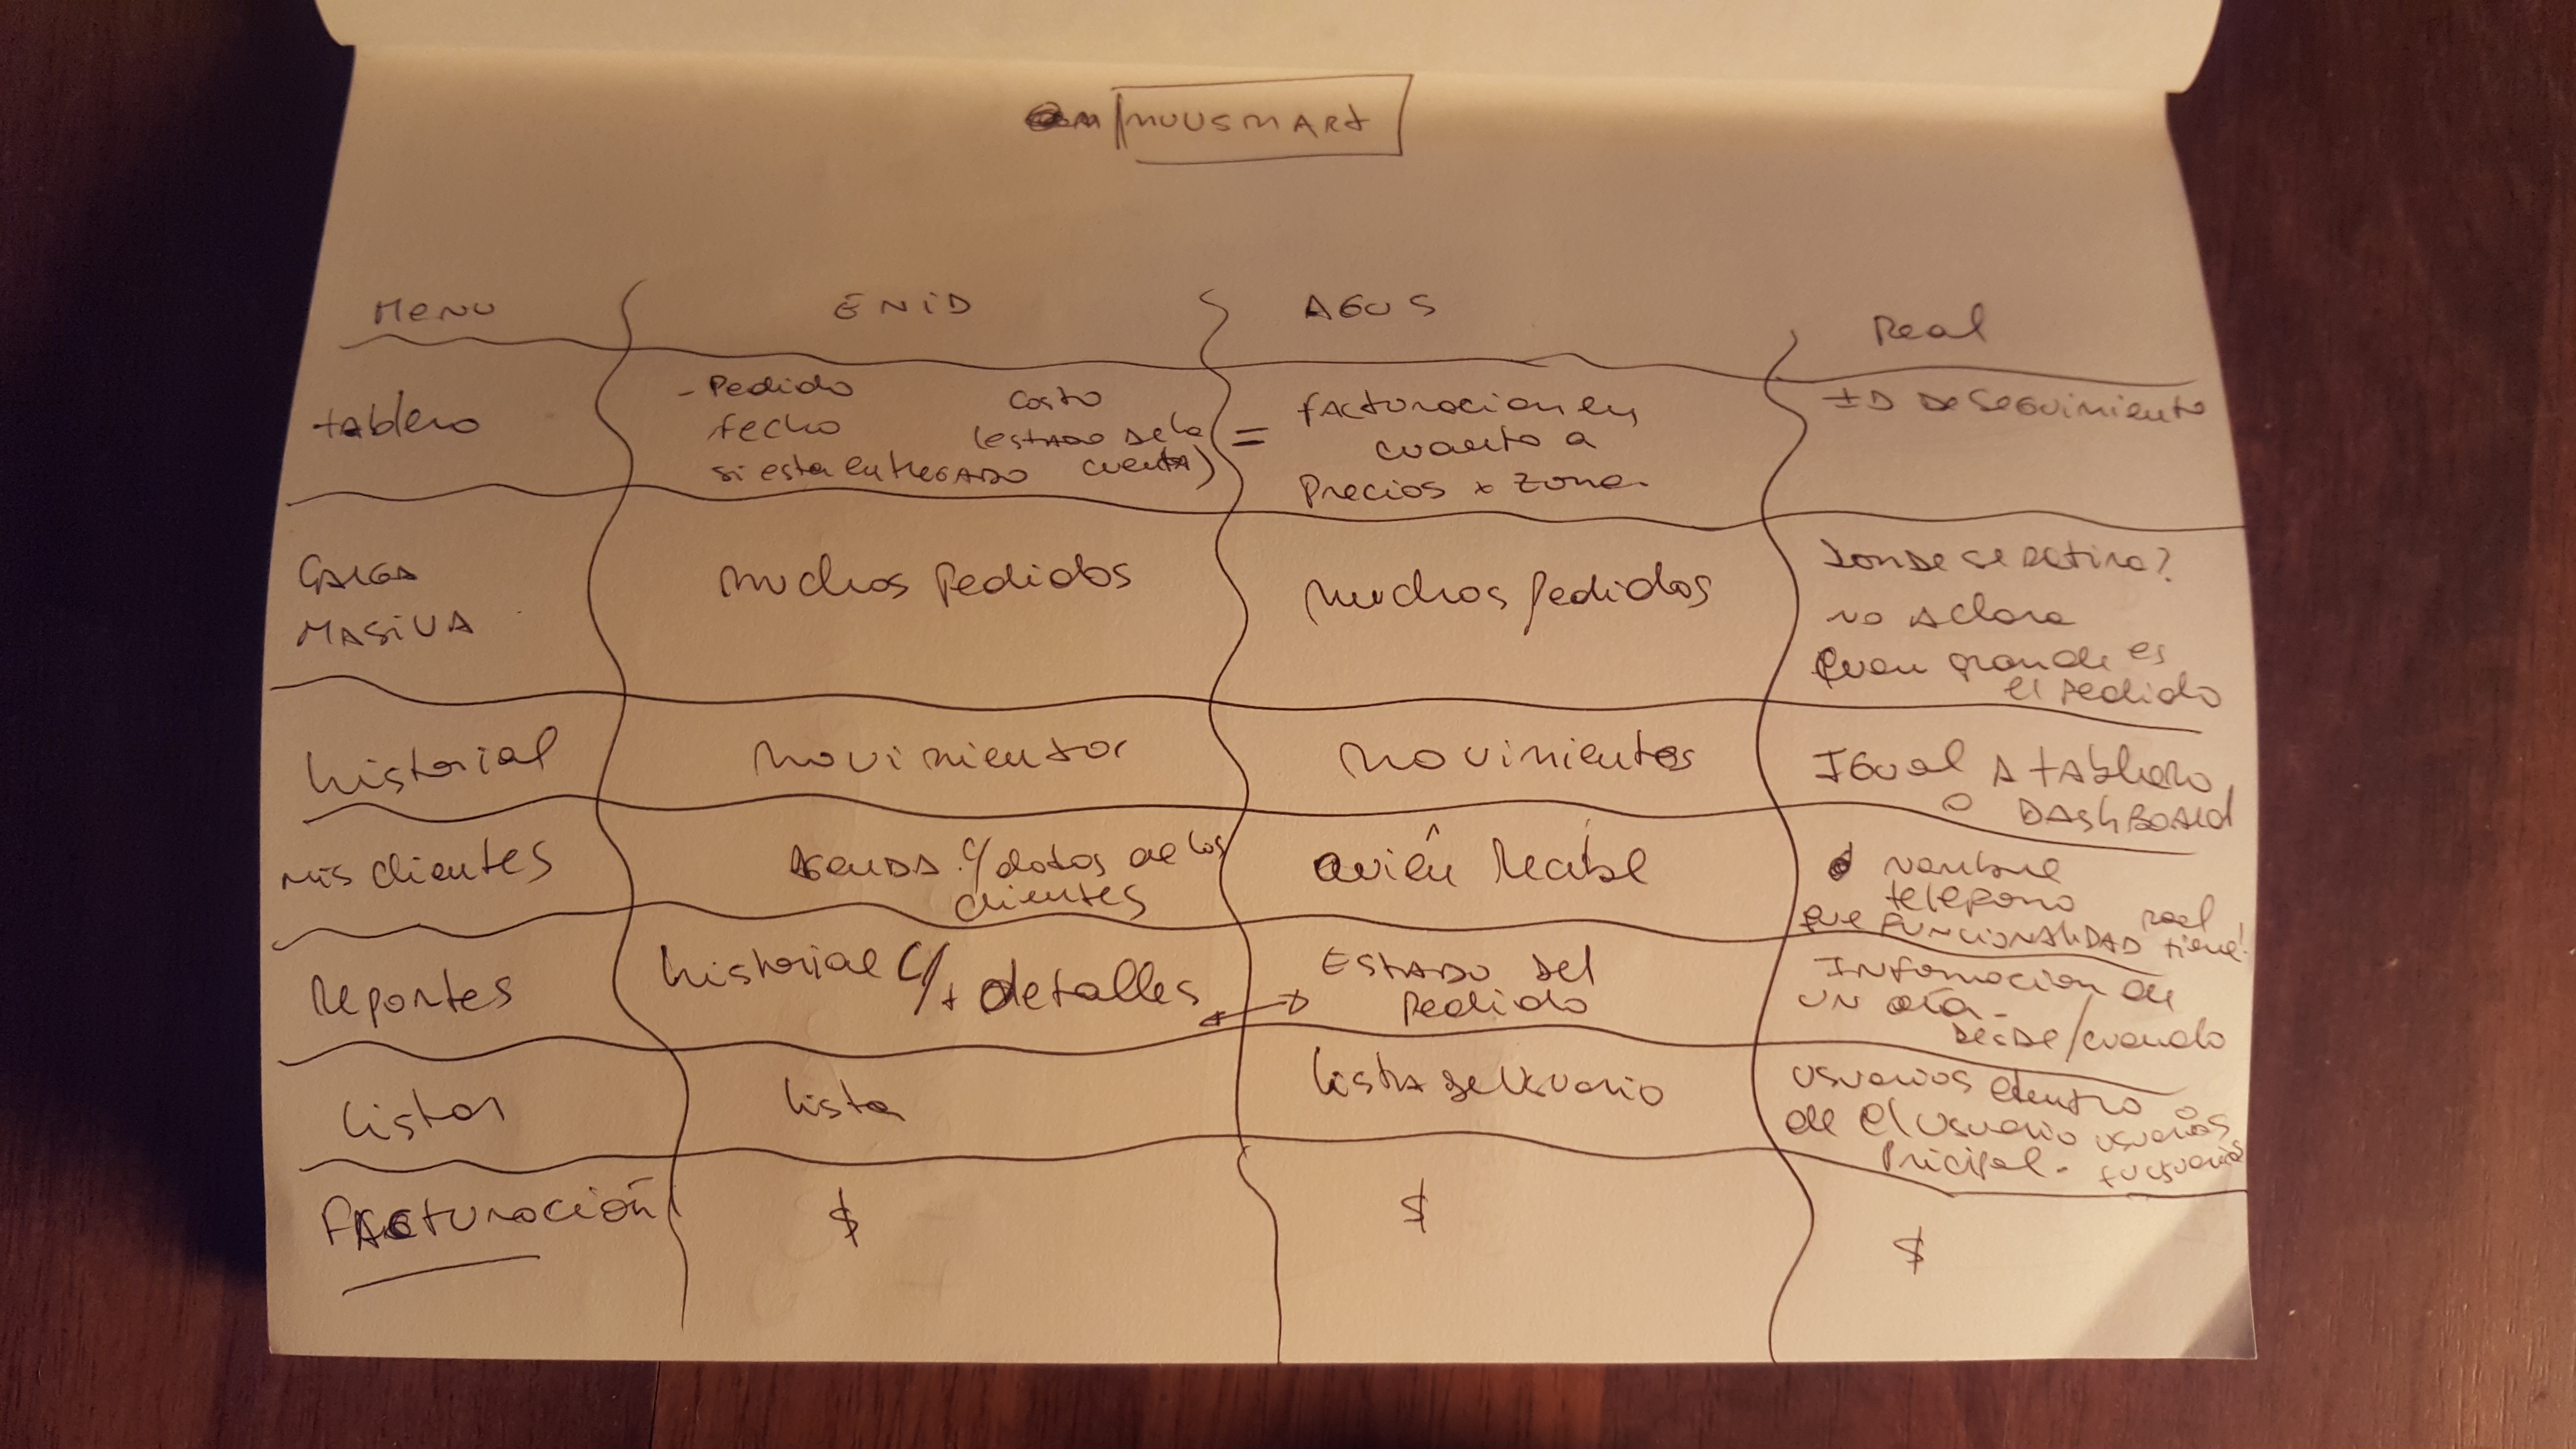 MOVSMART
MENU
ENID
AGUS
Real
tablero
- Pedido
fecha
si esta entregado
costo
(estado de la
cuenta)
=
facturacion en
cuanto a
precios x zona
ID de seguimiento
CARGA
MASIVA
Muchos Pedidos
Muchos pedidos
Donde se retira?
no aclara
quan grande es
el pedido
historial
Movimientos
Movimientos
IGUAL A tABlero
o DASHBOARD
mis clientes
AGENDA c/ datos de los
clientes
quién recibe
nombre
telefono
que funcionalidad real tiene!
Reportes
historial c/ + detalles
Estado del
Pedido
Informacion de
un día
desde/cuando
listas
lista
lista de usuario
usuarios dentro
de el usuario
$
Facturación
$
$